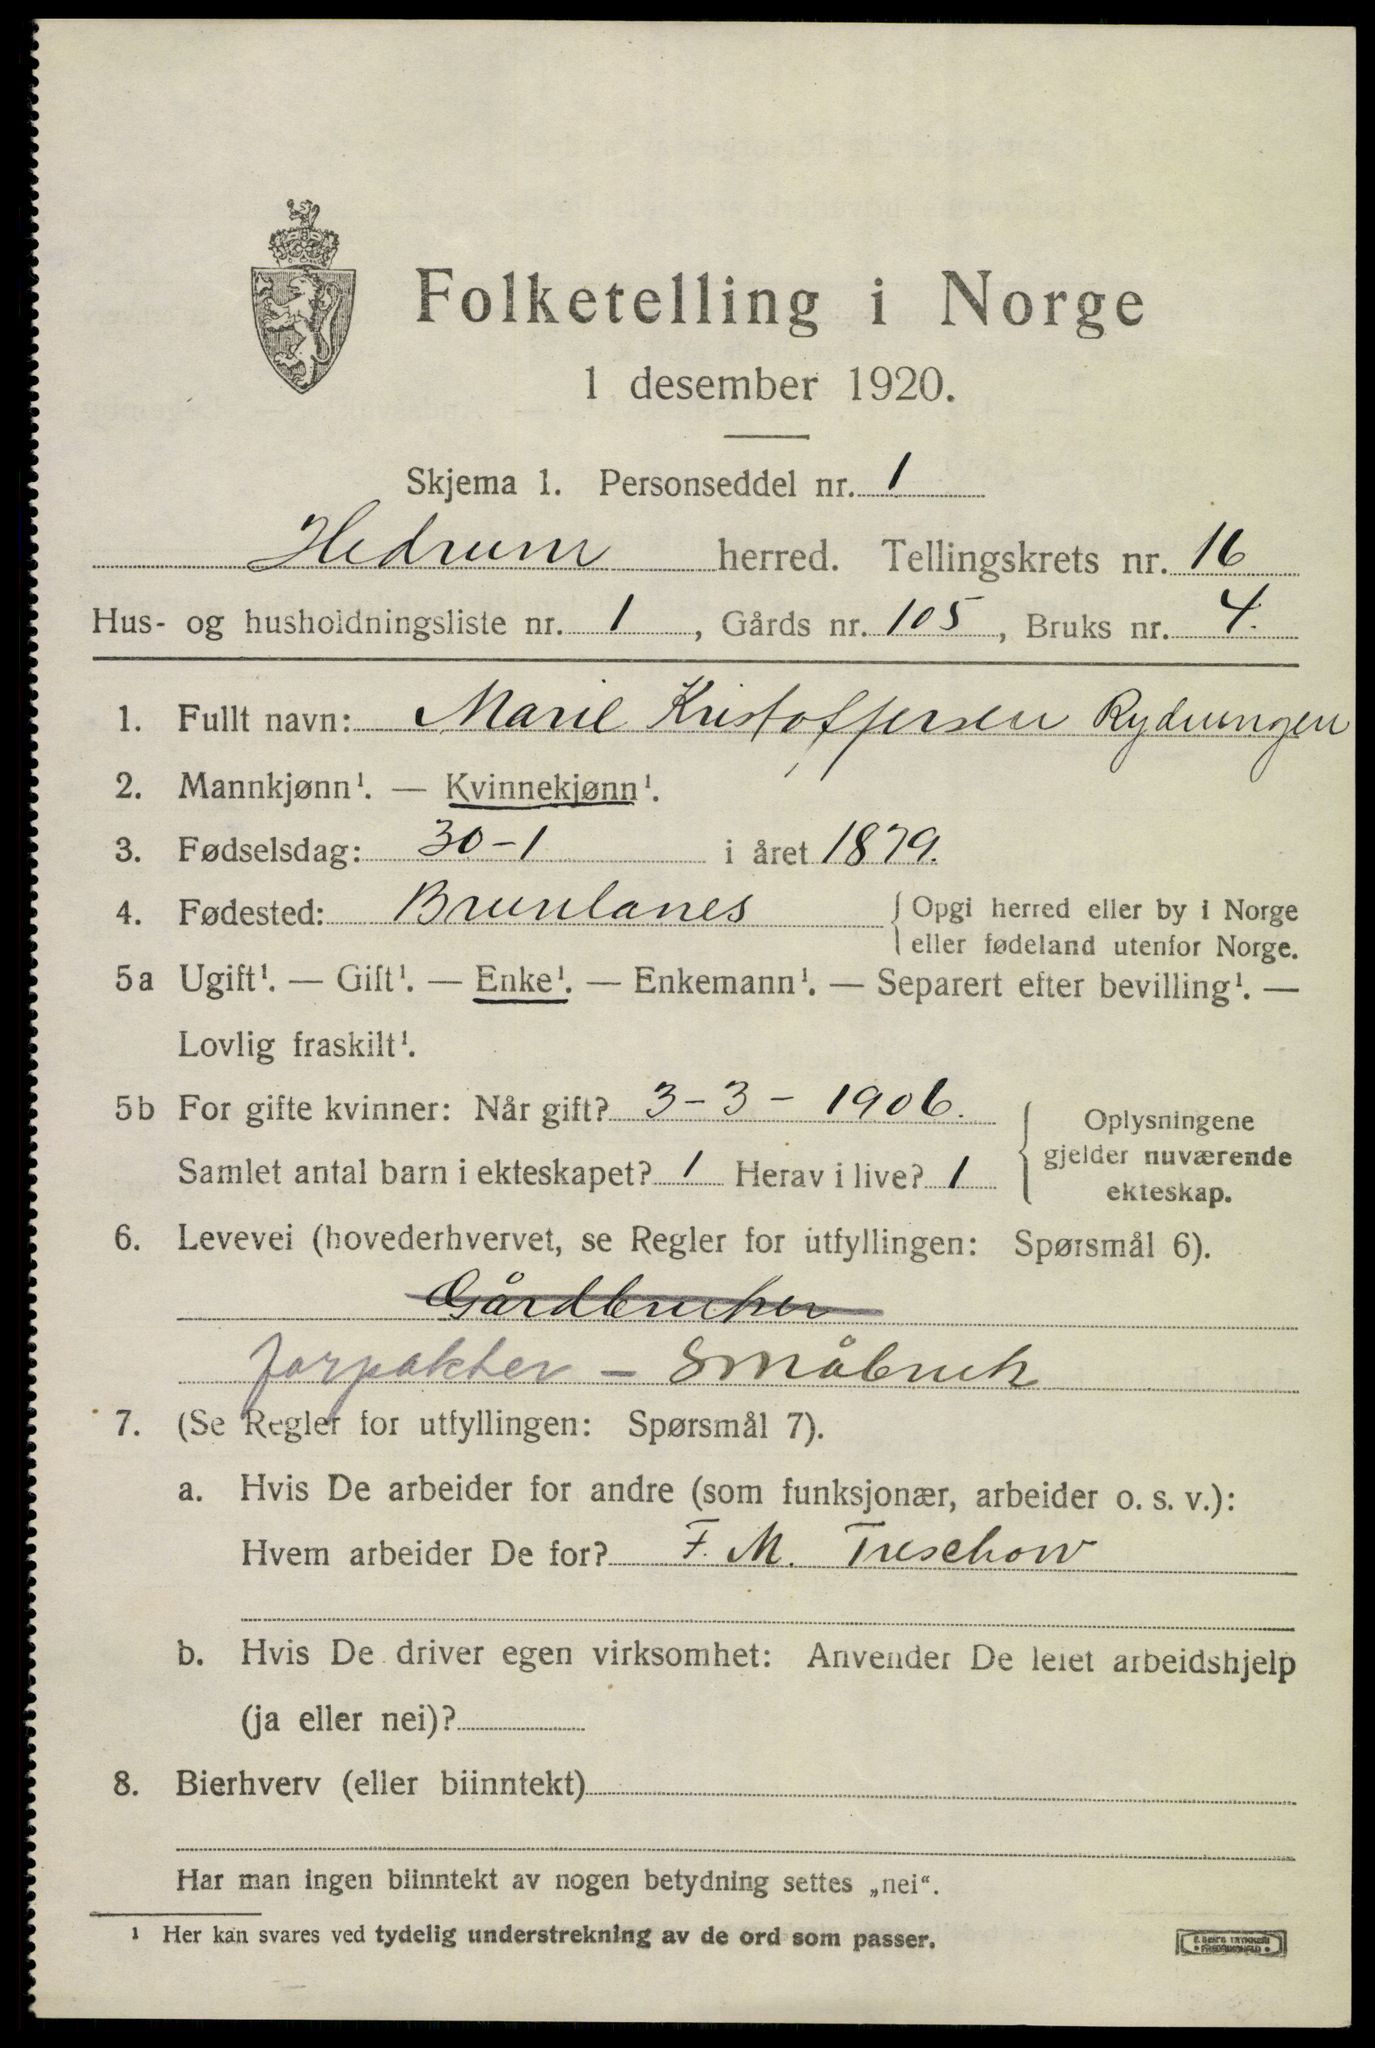 Folketelling i Norge
1 desember 1920.
Skjema 1. Personseddel nr. 1
Hedrum herred. Tellingskrets nr. 16
Hus- og husholdningsliste nr. 1, Gårds nr. 105, Bruks nr. 4.
1. Fullt navn: Marie Kristoffersen Rydningen
2. Mannkjønn¹. — Kvinnekjønn¹.
3. Fødselsdag: 30-1 i året 1879.
4. Fødested: Brunlanes { Opgi herred eller by i Norge
eller fødeland utenfor Norge.
5a Ugift¹. — Gift¹. — Enke¹. — Enkemann¹. — Separert efter bevilling¹. —
Lovlig fraskilt¹.
5b For gifte kvinner: Når gift? 3-3-1906.
Samlet antal barn i ekteskapet? 1 Herav i live? 1
Oplysningene
gjelder nuværende
ekteskap.
6. Levevei (hovederhvervet, se Regler for utfyllingen: Spørsmål 6).
Gårdbruker
forpakter - Småbruk
7. (Se Regler for utfyllingen: Spørsmål 7).
a. Hvis De arbeider for andre (som funksjonær, arbeider o. s. v.):
Hvem arbeider De for? F. M. Treschow
b. Hvis De driver egen virksomhet: Anvender De leiet arbeidshjelp
(ja eller nei)?
8. Bierhverv (eller biinntekt)
Har man ingen biinntekt av nogen betydning settes „nei“.
¹ Her kan svares ved tydelig understrekning av de ord som passer.